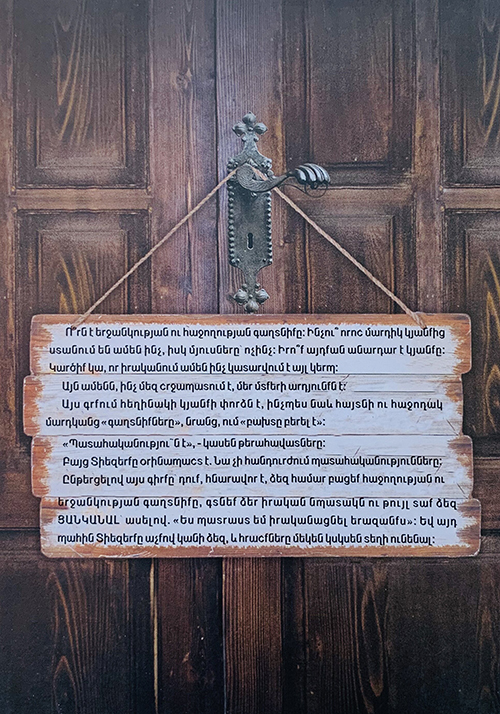 Ո՞րն է երջանկության ու հաջողության գաղտնիքը: Ինչու՞ որոշ մարդիկ կյանքից
ստանում են ամեն ինչ, իսկ մյուսները՝ ոչինչ: Իրո՞ք այդքան անարդար է կյանքը:
Կարծիք կա, որ իրականում ամեն ինչ կատարվում է այլ կերպ:
Այն ամենն, ինչ մեզ շրջապատում է, մեր մտքերի արդյունքն է:
Այս գրքում հեղինակի կյանքի փորձն է, ինչպես նաև հայտնի ու հաջողակ
մարդկանց «գաղտնիքները», նրանց, ում «բախտը բերել է»:
«Պատահականությու՜ն է», - կասեն թերահավատները:
Բայց Տիեզերքը օրինապաշտ է. Նա չի հանդուրժում պատահականությունները:
Ընթերցելով այս գիրքը՝ դուք, հնարավոր է, ձեզ համար բացեք հաջողության ու
երջանկության գաղտնիքը, գտնեք ձեր իրական նպատակն ու թույլ տաք ձեզ
ՑԱՆԿԱՆԱԼ՝ ասելով. «Ես պատրաստ եմ իրականացնել երազանքս»: Եվ այդ
պահին Տիեզերքը աչքով կանի ձեզ, և հրաշքները մեկեն կսկսեն տեղի ունենալ: